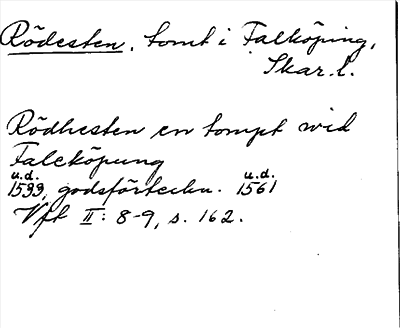 Rödesten, tomt i Falköping,
Skar. l.
Rödhesten en tompt wid
Faleköpung
u.d. u.d.
1599, godsförteckn. 1561
Vft II: 8-9, s. 162.